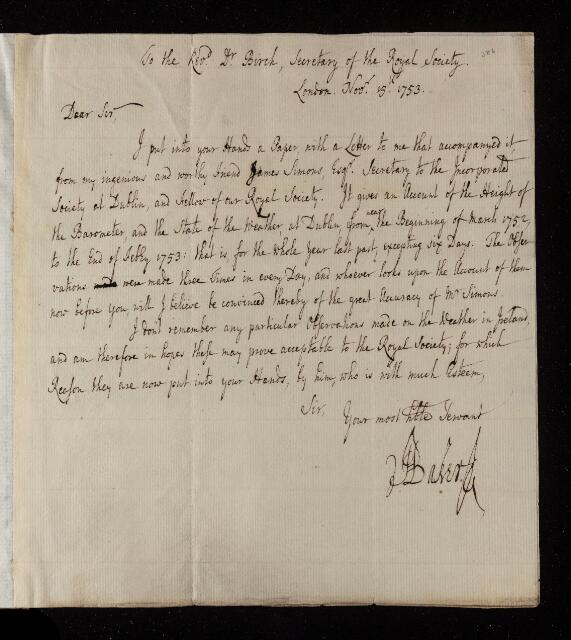 To the Revd. Dr Birch, Secretary of the Royal Society.
London. Novr. 15th 1753.
Dear Sir,
I put into your Hands a Paper, with a Letter to me that accompanied it
from my ingenious and worthy Friend James Simons, Esqr. Secretary to the Incorporated
Society at Dublin, and Fellow of our Royal Society. It gives an Account of the Height of
the Barometer, and the State of the Weather, at Dublin, from near the Beginning of March 1752,
to the End of Febry 1753: that is, for the whole year last past, excepting six Days. The Obser
vations made were made three Times in every Day, and whoever looks upon the Account of them
now before you, will I believe be convinced thereby of the great Accuracy of Mr Simons.
I don't remember any particular Observations made on the Weather in Ireland,
and am therefore in hopes these may prove acceptable to the Royal Society; for which
Reason they are now put into your Hands, by him, who is with much Esteem,
Sir,
Your most hble Servant
H Baker.